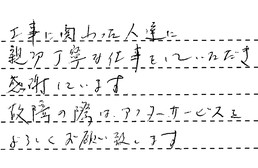 工事に関わった人達に
親切丁寧な仕事をしていただき
感謝しています
故障の際はアフターサービスを
よろしくお願い致します